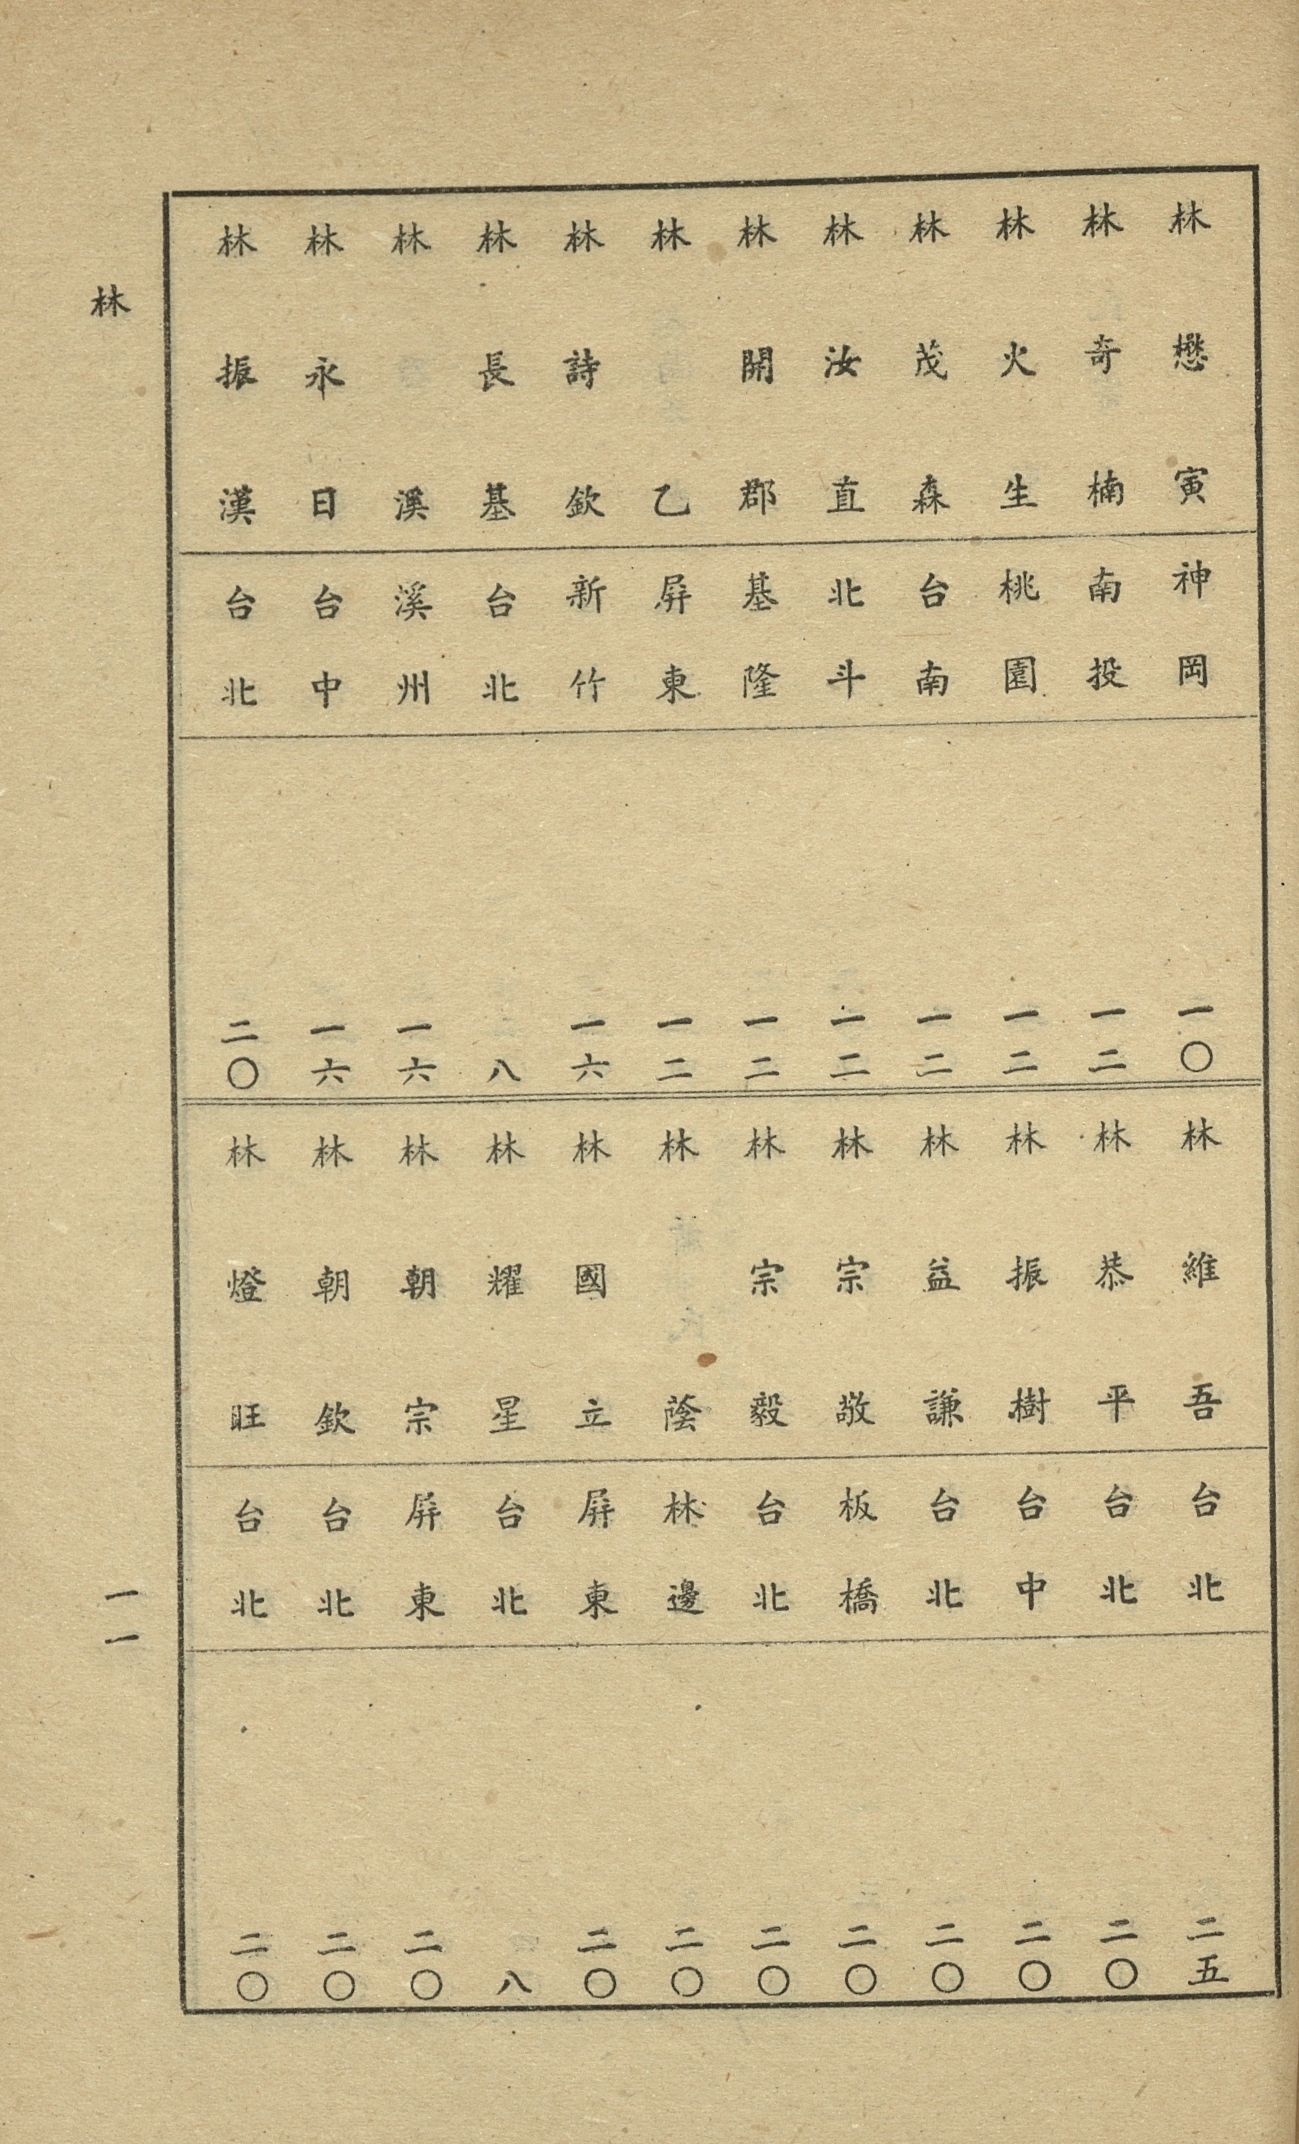 林懋寅 神岡 一〇
林奇楠 南投 一二
林火生 桃園 一二
林茂森 台南 一二
林汝直 北斗 一二
林開郡 基隆 一二
林乙 屏東 一二
林詩欽 新竹 一六
林長基 台北 八
林溪 溪州 一六
林永日 台中 一六
林振漢 台北 二〇
林維吾 台北 二五
林恭平 台北 二〇
林振樹 台中 二〇
林益謙 台北 二〇
林宗敬 板橋 二〇
林宗毅 台北 二〇
林蔭 林邊 二〇
林國立 屏東 二〇
林耀星 台北 八
林朝宗 屏東 二〇
林朝欽 台北 二〇
林燈旺 台北 二〇
林
一一